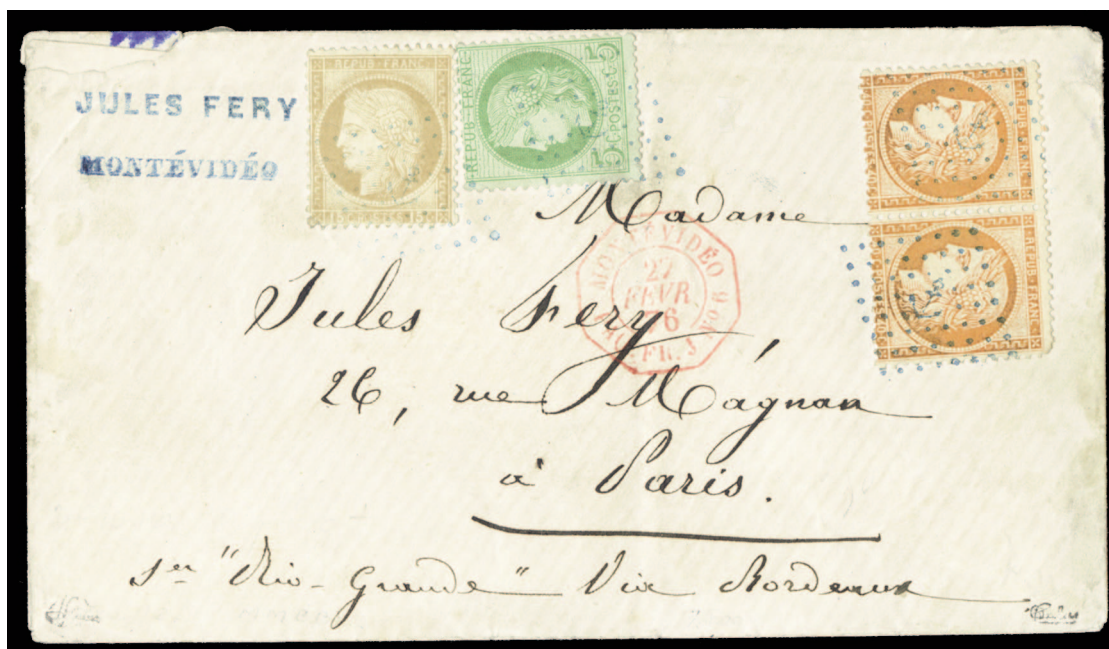 JULES FERY
MONTÉVIDÉO
REPUB · FRANC
15 C POSTES 15 C
REPUB · FRANC
5 C POSTES 5 C
REPUB · FRANC
REPUB · FRANC
MONTEVIDÉO
27
FEVR
76
Madame
Jules Fery
26, rue Magnan
à Paris.
"Rio-Grande" Via Bordeaux